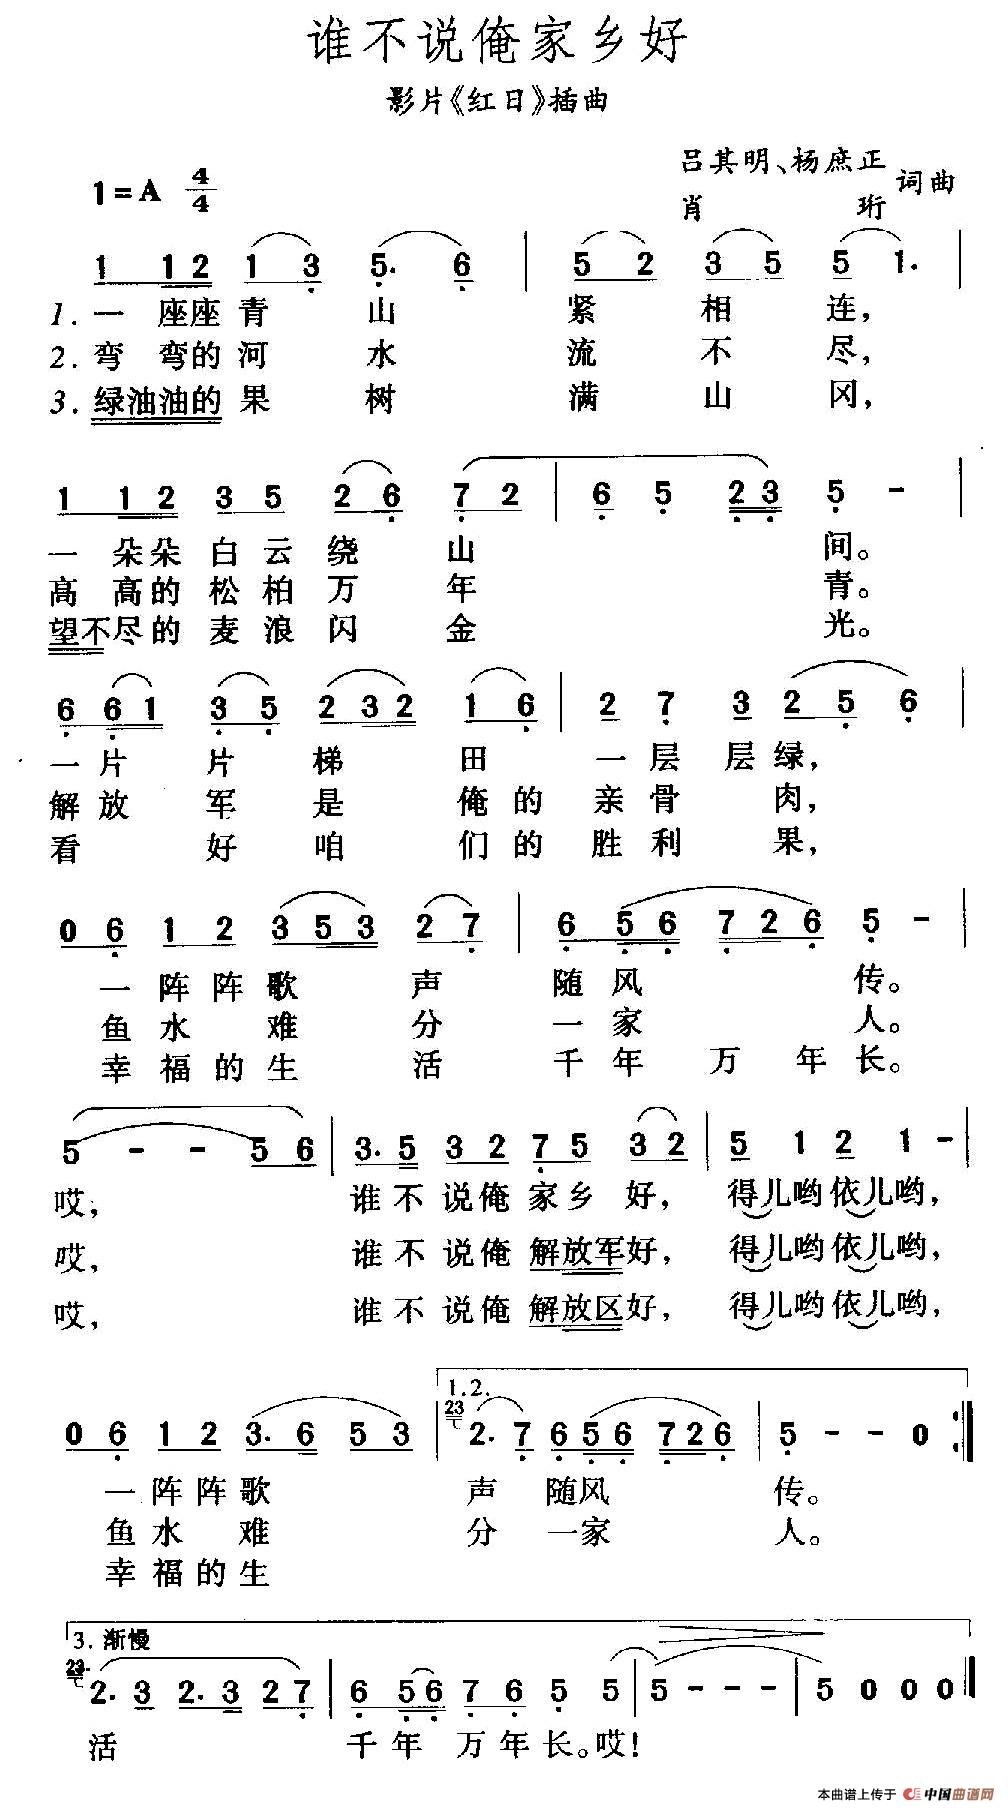 谁不说俺家乡好
影片《红日》插曲
吕其明、杨庶正
1=A 4/4
肖珩 词曲
1 1 2 1 3 5. 6 | 5 2 3 5 5 1. |
1. 一座座青山 紧相连,
2. 弯弯的河水 流不尽,
3. 绿油油的果树 满山冈,
1 1 2 3 5 2 6 7 2 | 6 5 2 3 5 - |
一朵朵白云绕山 间。
高高的松柏万年 青。
望不尽的麦浪闪金 光。
6 6 1 3 5 2 3 2 1 6 | 2 7 3 2 5 6 |
一片片梯田 一层层绿,
解放军是俺的亲骨肉,
看好咱们的胜利果,
0 6 1 2 3 5 3 2 7 | 6 5 6 7 2 6 5 - |
一阵阵歌声 随风传。
鱼水难分 一家人。
幸福的生活 千年万年长。
5 - - 5 6 | 3. 5 3 2 7 5 3 2 | 5 1 2 1 - |
哎, 谁不说俺家乡好, 得儿哟依儿哟,
哎, 谁不说俺解放军好, 得儿哟依儿哟,
哎, 谁不说俺解放区好, 得儿哟依儿哟,
1.2.
0 6 1 2 3. 6 5 3 | 23 2. 7 6 5 6 7 2 6 | 5 - - 0 :|
一阵阵歌 声随风 传。
鱼水难 分一家 人。
幸福的生
3. 渐慢
23 2. 3 2. 3 2 7 | 6 5 6 7 6 5 5 | 5 - - - | 5 0 0 0 |
活 千年万年长。哎!
本曲谱上传于 中国曲谱网